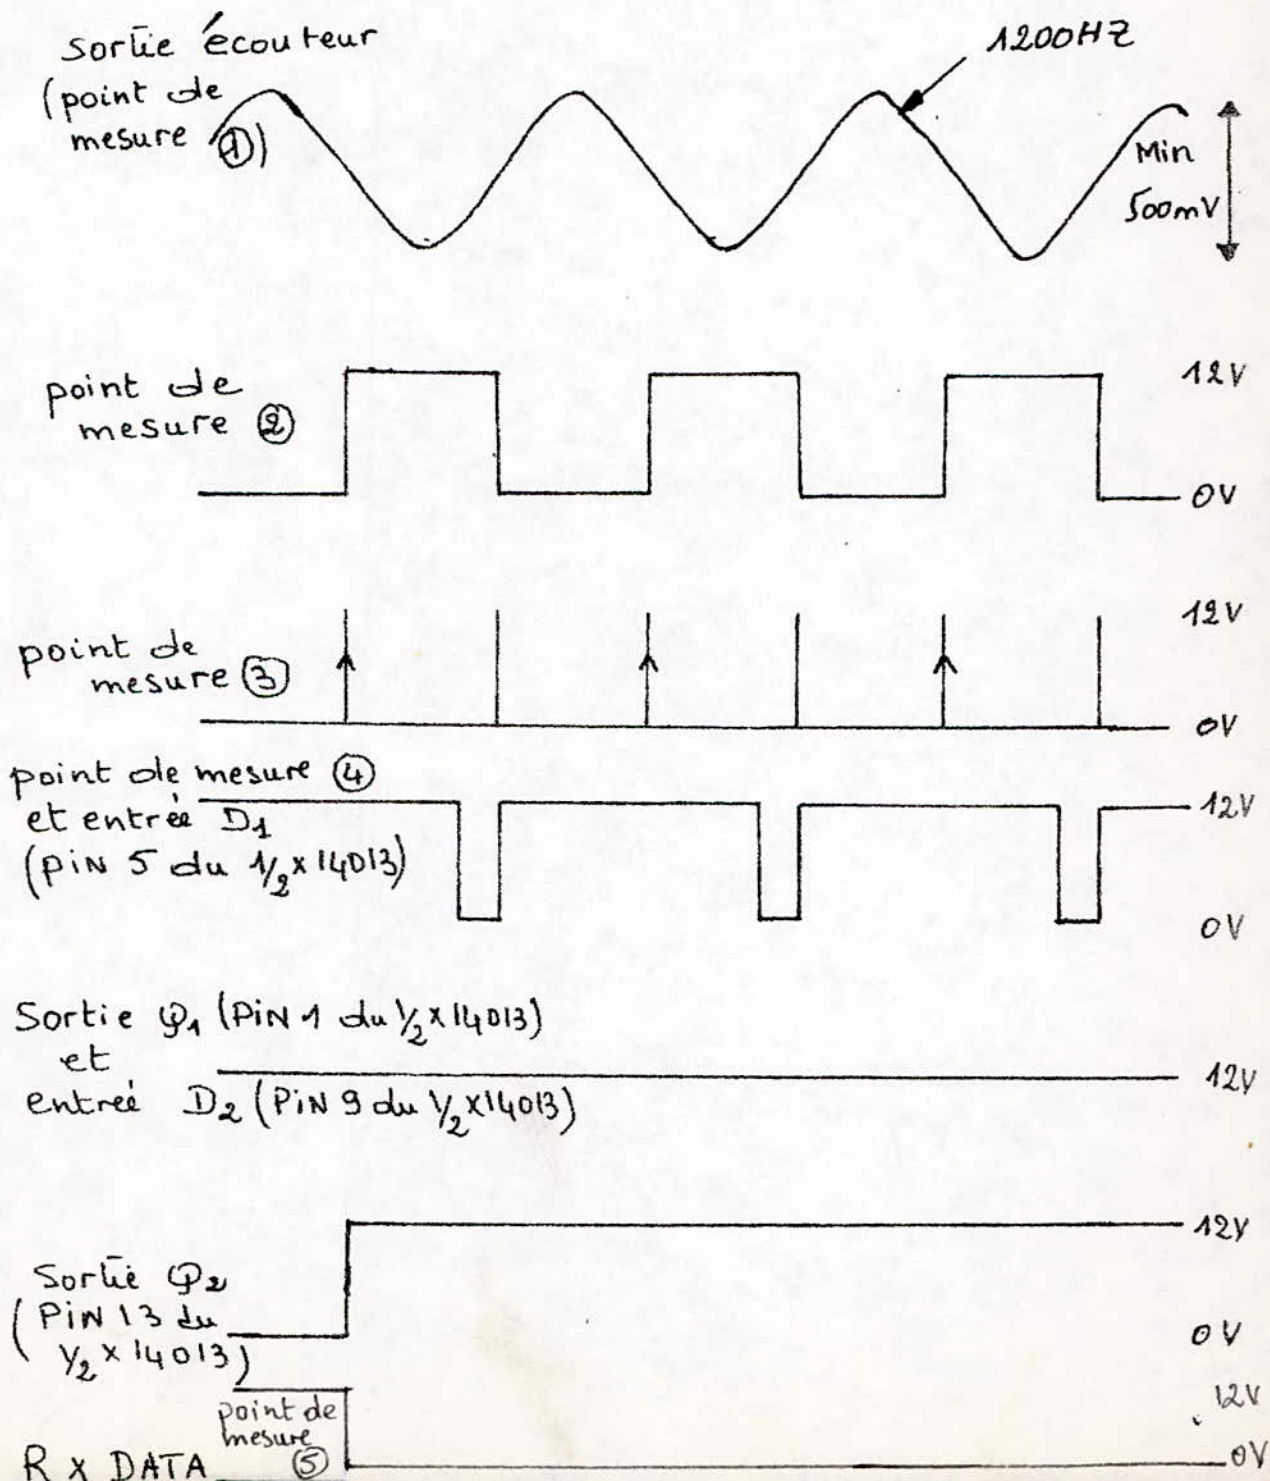 Sortie écouteur
(point de
mesure ①)
1200HZ
Min
500mV
point de
mesure ②
12V
0V
point de
mesure ③
12V
0V
point de mesure ④
et entrée D1
(PIN 5 du 1/2 x 14013)
12V
0V
Sortie Q1 (PIN 1 du 1/2 x 14013)
et
entrée D2 (PIN 9 du 1/2 x 14013)
12V
Sortie Q2
(PIN 13 du
1/2 x 14013)
12V
0V
point de
mesure
⑤
R x DATA
12V
0V